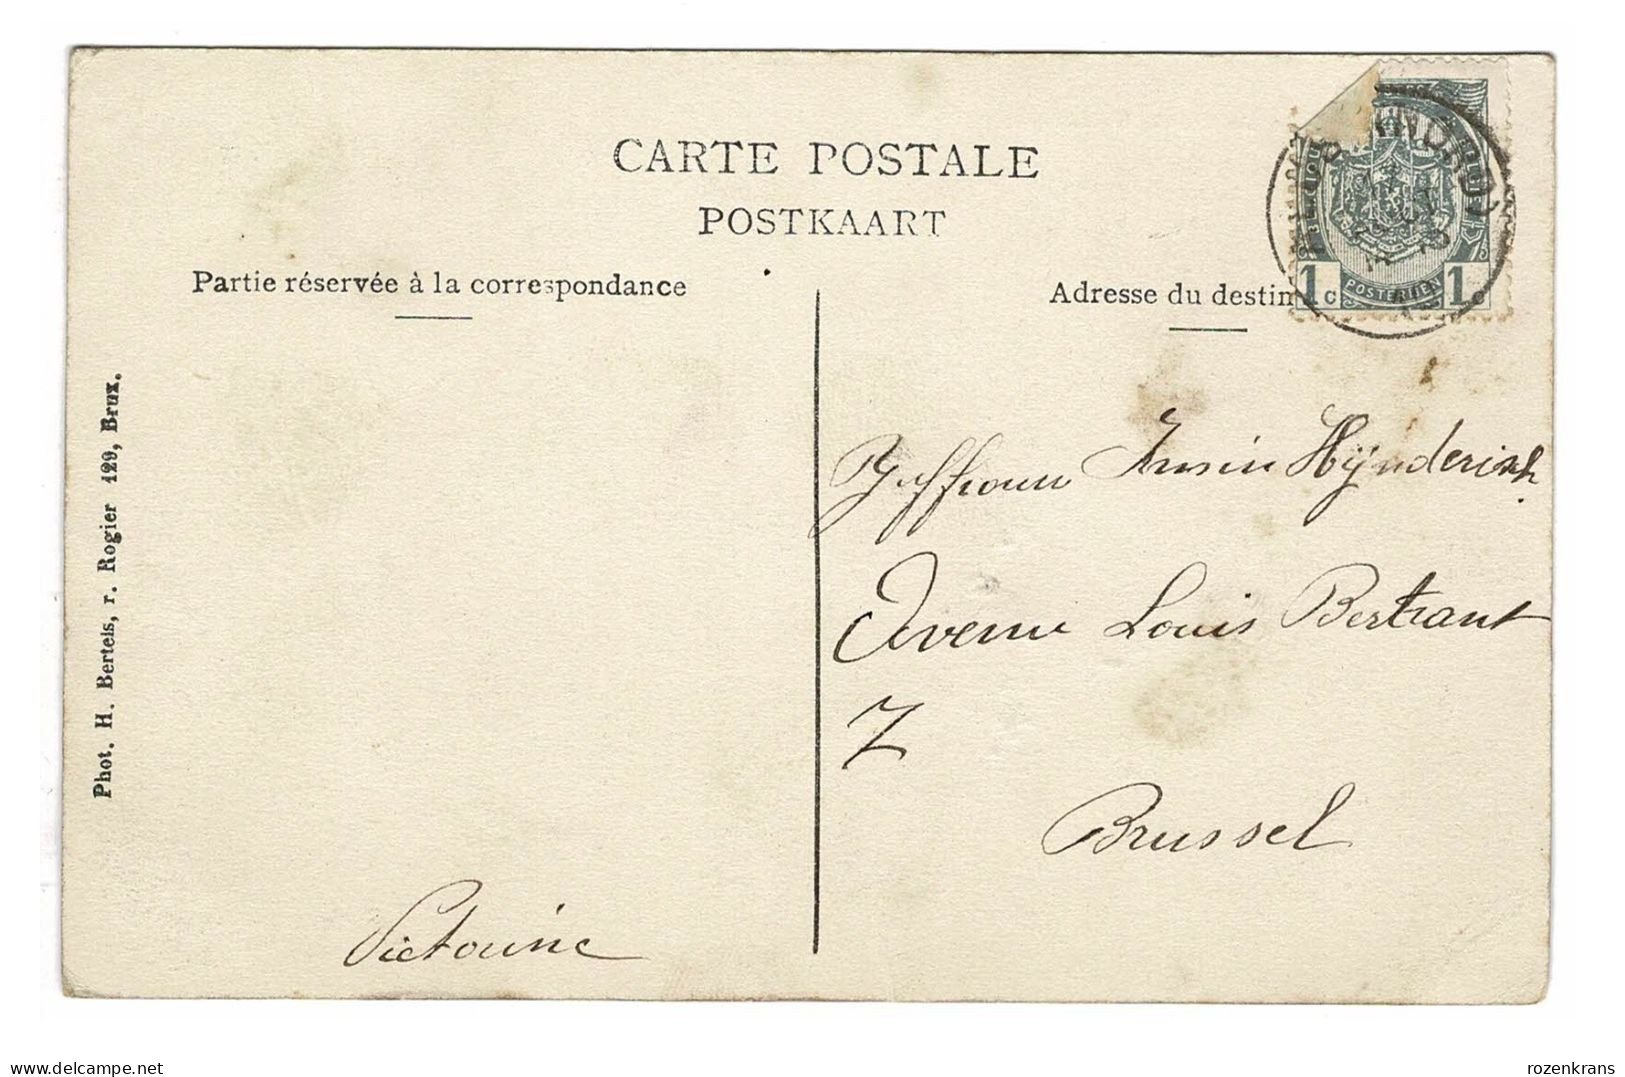 CARTE POSTALE
POSTKAART
Partie réservée à la correspondance
Adresse du destin
1c POSTERIJEN 1c
Phot. H. Bertels, r. Rogier 129, Brux.
Jeffrouw
Avenue Louis Bertrant
7
Brussel
Victorine
rozenkrans